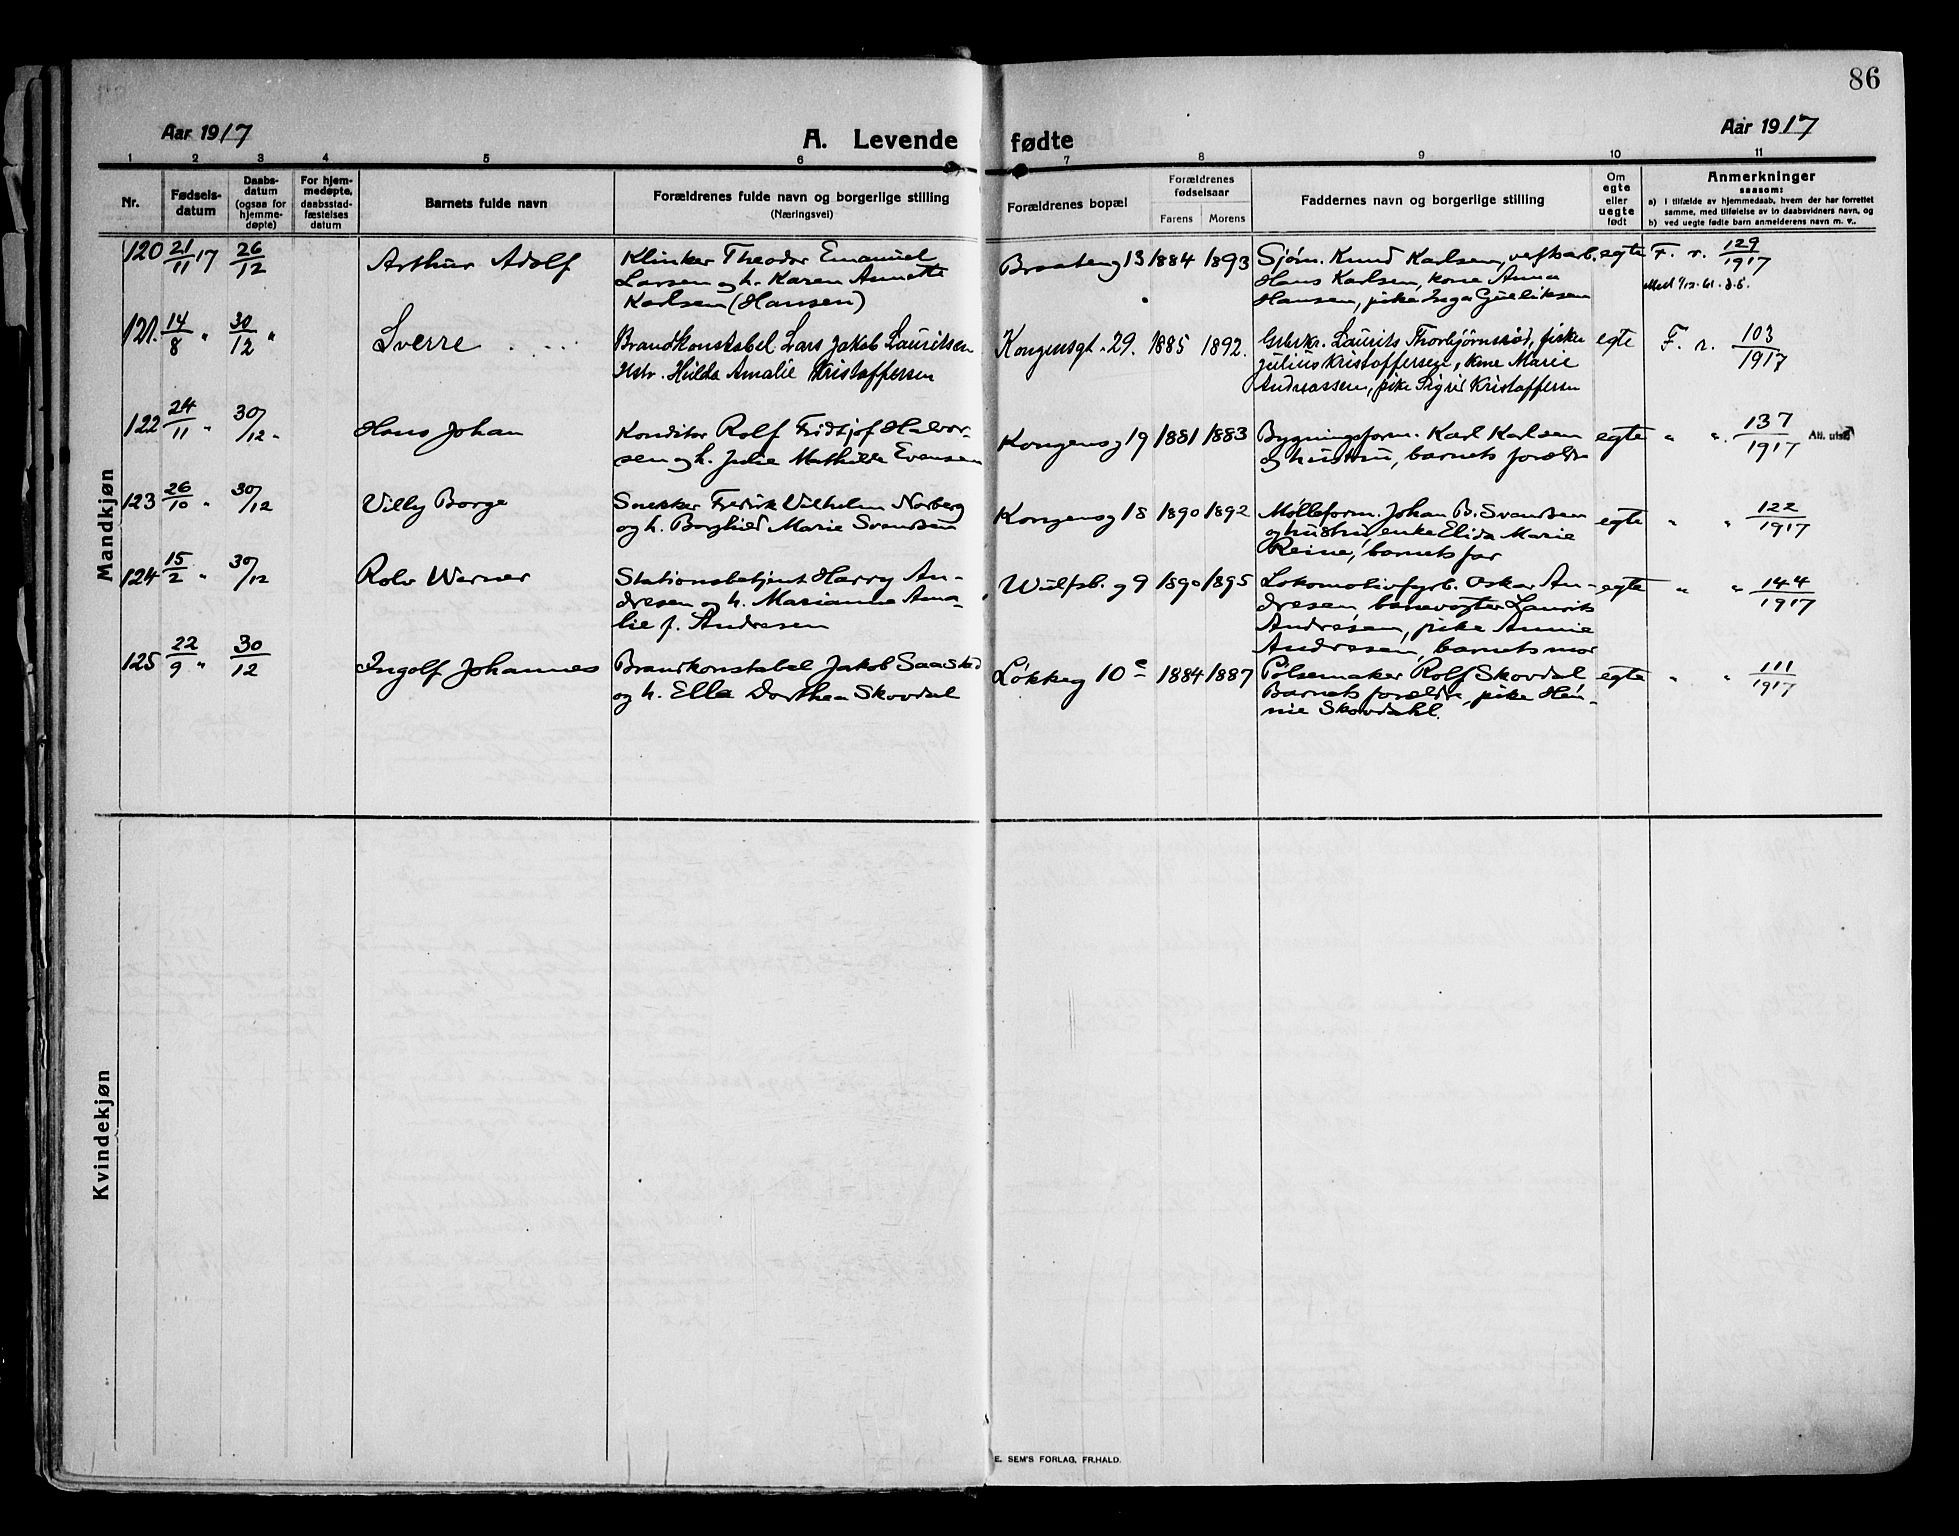 86
Aar 1917
A. Levende fødte
Aar 1917
1 2 3 4 5 6 7 8 9 10 11
Nr.
Fødsels-
datum
Daabs-
datum
(ogsaa for
hjemme-
døpte)
For hjem-
medøpte,
daabsstad-
fæstelses
datum
Barnets fulde navn
Forældrenes fulde navn og borgerlige stilling
(Næringsvei)
Forældrenes bopæl
Forældrenes
fødselsaar
Farens Morens
Faddernes navn og borgerlige stilling
Om
egte
eller
uegte
født
Anmerkninger
saasom:
a) i tilfælde av hjemmedaab, hvem der har forrettet
samme, med tilføielse av to daabsvidners navn, og
b) ved uegte fødte barn anmelderens navn m. v..
Mandkjøn
120 21/11 17 26/12 Arthur Adolf
Klinker Theodor Emanuel
Larsen og h. Karen Annette
Karlsen (Hansen)
Braateng 13 1884 1893
Sjøm. Knud Karlsen, verftsarb.
Hans Karlsen, kone Anna
Hansen, pike Inga Gulliksen
egte F. r. 129/1917
121. 14/8 " 30/12 " Sverre
Brandkonstabel Lars Jakob Lauritsen
Hstr. Hilda Amalie Kristoffersen
Kongensgt. 29. 1885 1892.
Laurits Thorbjørnsrød, fisker
Julius Kristoffersen, kone Marie
Andreassen, pike Sigrid Kristoffersen
egte F. r. 103/1917
122 24/11 " 30/12 " Hans Johan
Konditor Rolf Fridtjof Halvor-
sen og h. Julie Mathilde Evensen
Kongensg 19 1881 1883
Bygningsform. Karl Karlsen
og hustru, barnets forældre
egte " " 137/1917 Att. utst
123 26/10 " 30/12 Villy Borge
Snekker Fredrik Vilhelm Norberg
og h. Borghild Marie Svendsen
Kongensg 18 1890 1892
Mølleform. Johan B. Svendsen
og hustru, enke Elida Marie
Reine, barnets far
egte " " 122/1917
124 15/2 " 30/12 Rolv Werner
Stationsbetjent Harry An-
dresen og h. Marianne Ama-
lie f. Andresen
Wulfsb. g 9 1890 1895
Lokomotivfyrb. Oskar An-
dresen, banevogter Laurits
Andresen, pike Annie
Andresen, barnets mor
egte " " 144/1917
125 22/9 " 30/12 Ingolf Johannes
Brandkonstabel Jakob Saastad
og h. Ella Dorthea Skovdal
Løkkeg 10 c 1884 1887
Pølsemaker Rolf Skovdal
Barnets forældre, pike Hen-
nie Skovdahl.
egte " " 111/1917
Kvindekjøn
E. SEM'S FORLAG, FR.HALD.